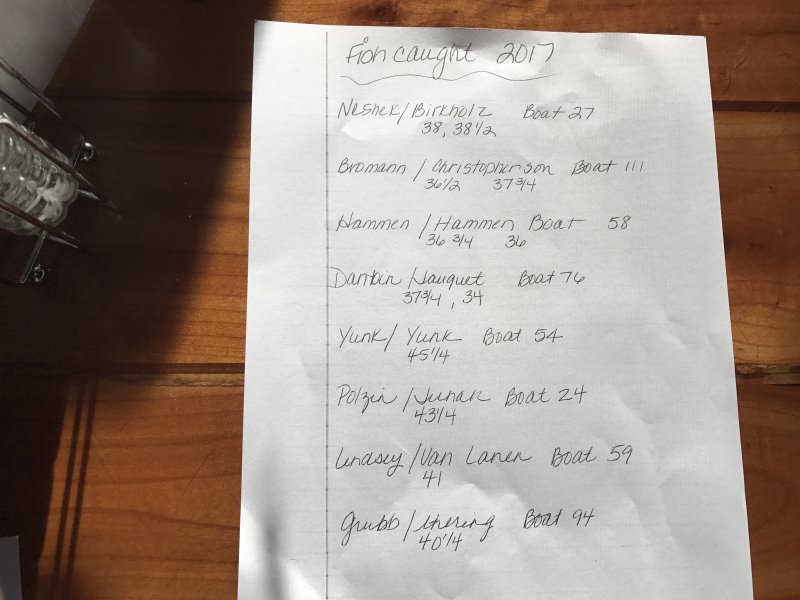 Fish caught 2017
Neshek/Birkholz Boat 27
38, 38 1/2
Bromann / Christopherson Boat 111
36 1/2 37 3/4
Hammen / Hammen Boat 58
36 3/4 36
Boat 76
37 3/4, 34
Yunk / Yunk Boat 54
45 1/4
Polzin / Boat 24
43 1/4
Lindsey / Van Lanen Boat 59
41
Grubb / Boat 94
40 1/4